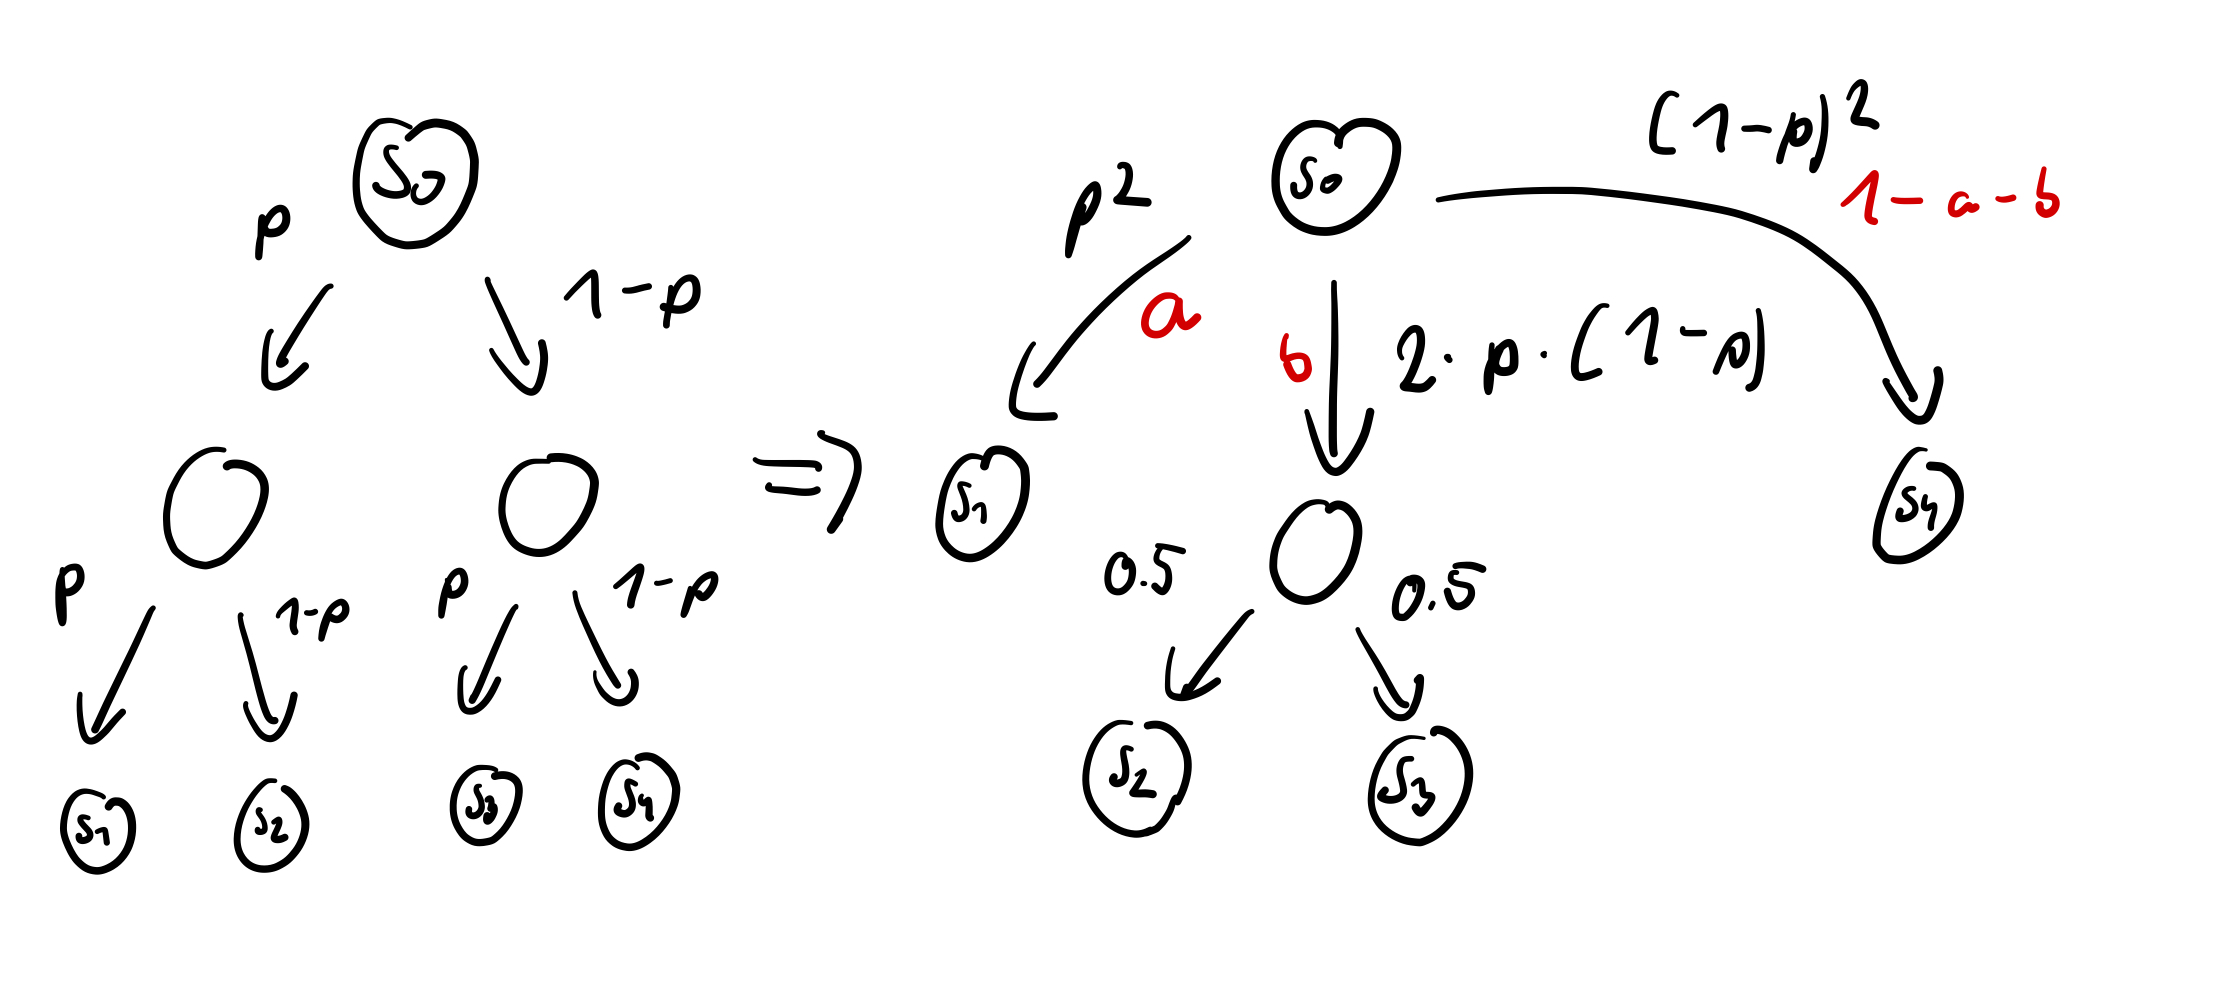 S0
p
1-p
p
1-p
p
1-p
S1
S2
S3
S4
=>
S0
p²
a
b
2·p·(1-p)
(1-p)²
1-a-b
S1
S4
0.5
0.5
S2
S3